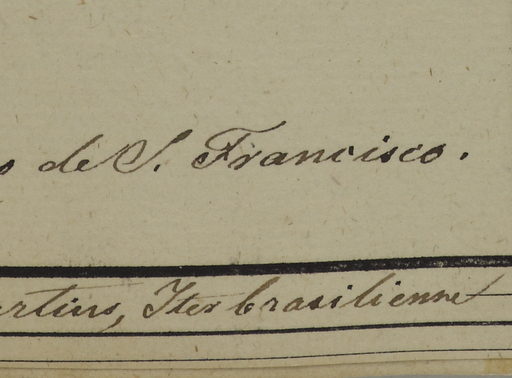 o de S. Francisco.
artius, Iter brasilienne